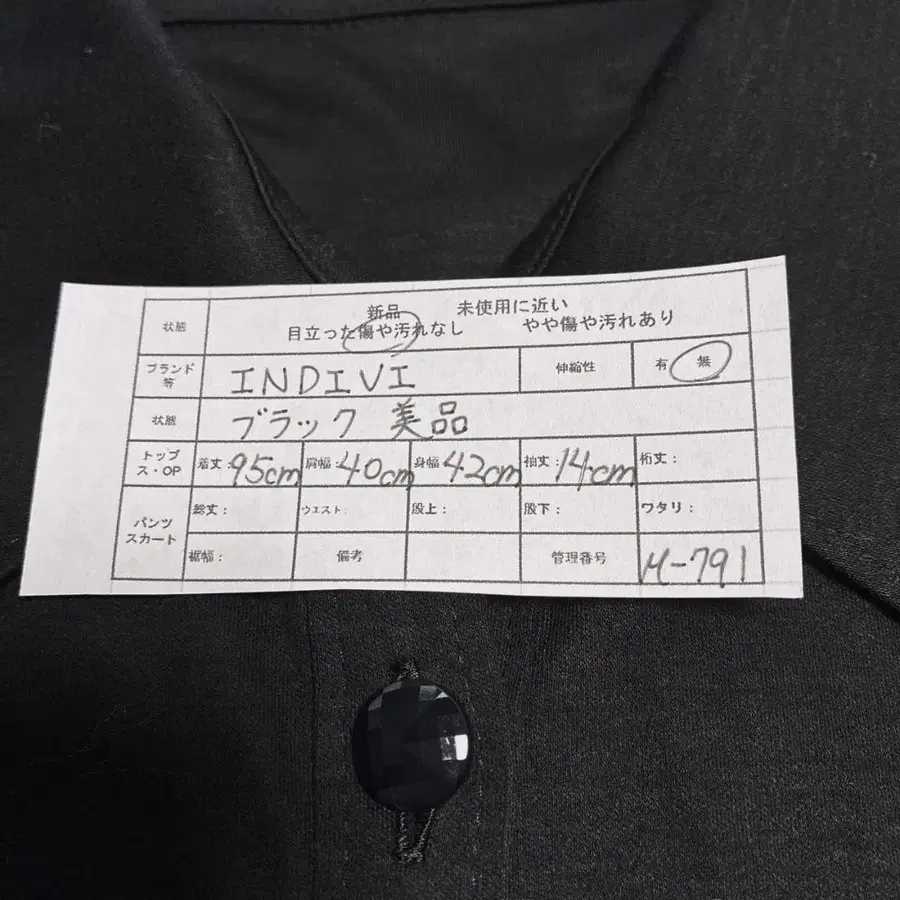 状態 新品 未使用に近い
目立った傷や汚れなし やや傷や汚れあり
ブランド等 INDIVI 伸縮性 有 無
状態 ブラック 美品
トップス・OP 着丈:95cm 肩幅:40cm 身幅:42cm 袖丈:14cm 裄丈:
パンツスカート 総丈: ウエスト: 股上: 股下: ワタリ:
裾幅: 備考 管理番号 M-791